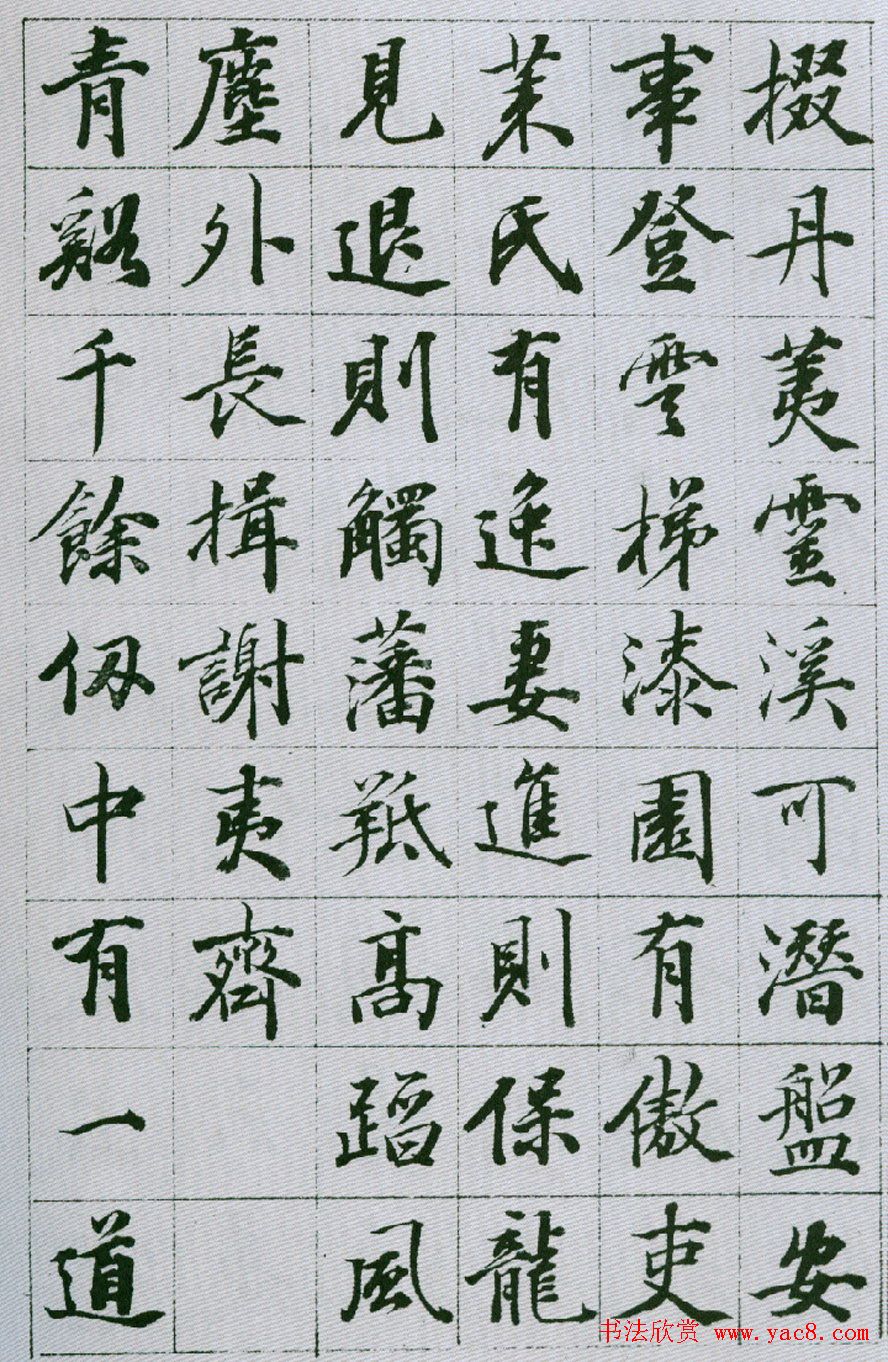 掇丹荑靈溪可潛盤安
事登雲梯漆園有傲吏
莱氏有逸妻進則保龍
見退則觸藩羝高蹈風
塵外長揖謝夷齊
青谿千餘仞中有一道
书法欣赏 www.yac8.com